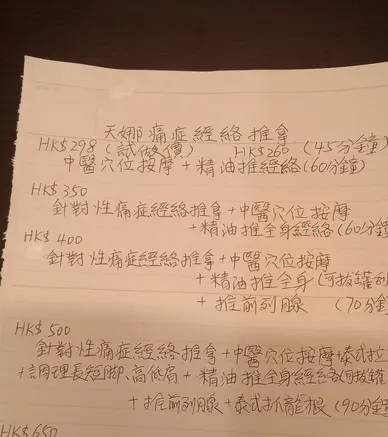 天娜痛症經絡推拿
HK$298 (試做價) HK$260 (45分鐘)
中醫穴位按摩 + 精油推經絡(60分鐘)
HK$350
針對性痛症經絡推拿+中醫穴位按摩
+精油推全身經絡(60分鐘
HK$400
針對性痛症經絡推拿+中醫穴位按摩
+精油推全身(可拔罐刮
+推前列腺 (70分鐘
HK$500
針對性痛症經絡推拿+中醫穴位按摩+泰式拉
+調理長短腳、高低肩 + 精油推全身經絡(可拔罐
+推前列腺+泰式抓龍根 (90分鐘
HK$650